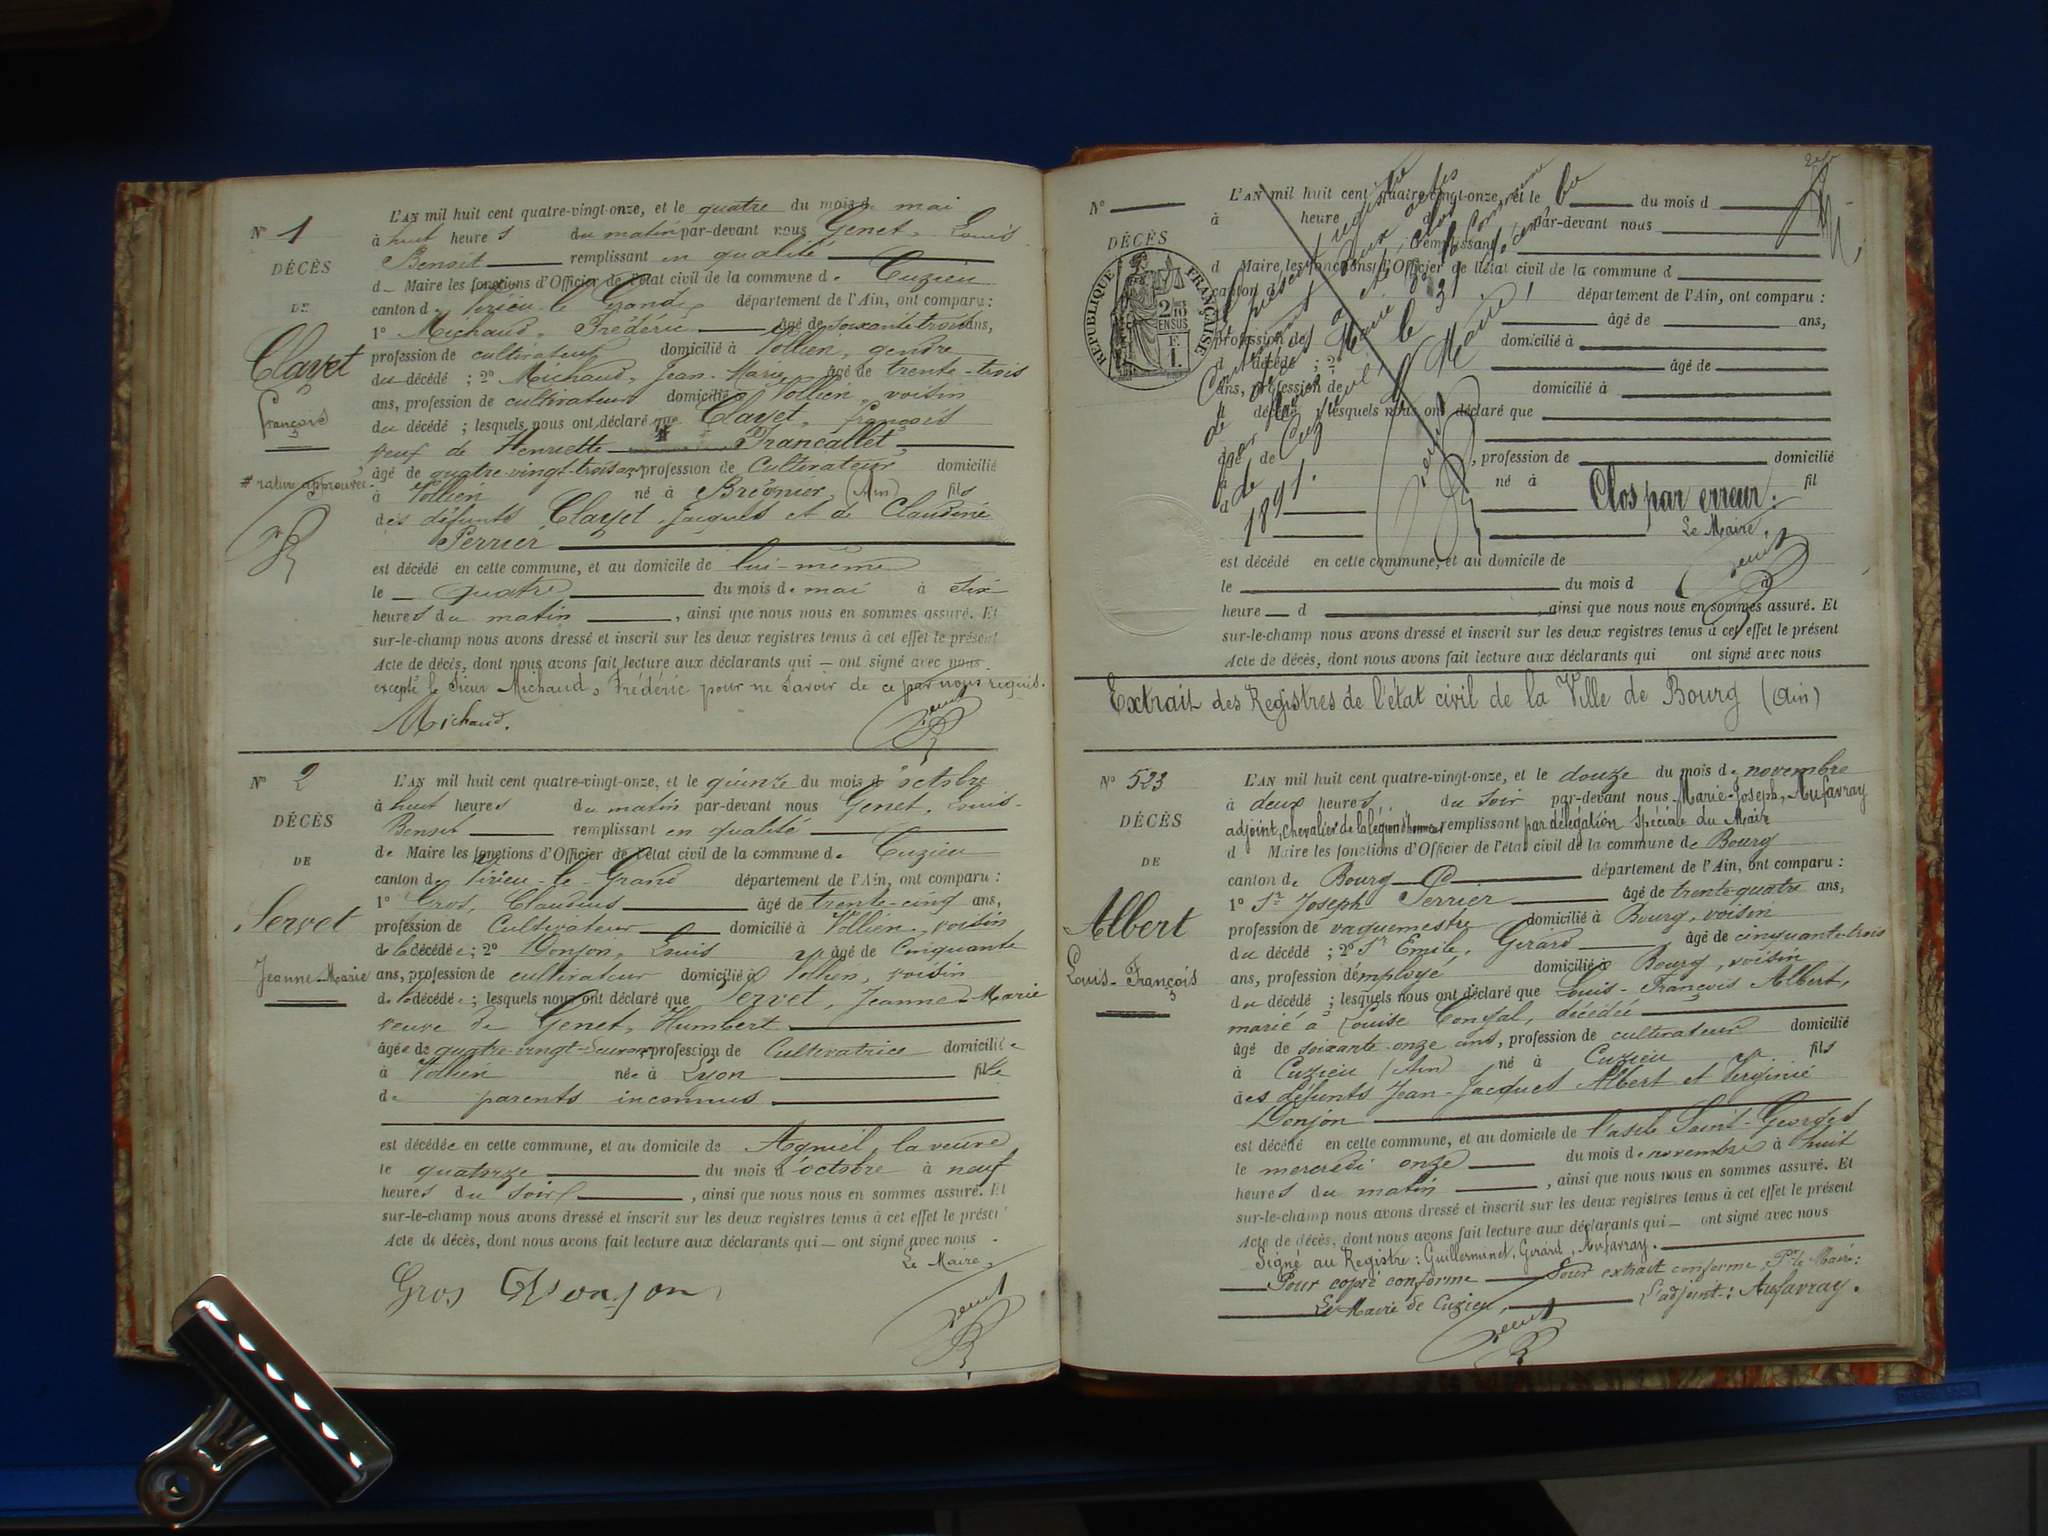 N° 1
DÉCÈS
DE
Clayet
François
# rature approuvée
L'AN mil huit cent quatre-vingt-onze, et le quatre du mois de mai
à huit heures du matin par-devant nous Genet, Louis-
Benoit remplissant en qualité
de Maire les fonctions d'Officier de l'état civil de la commune de Cuzieu
canton de Virieu-le-Grand, département de l'Ain, ont comparu :
1° Michaud, Frédéric âgé de soixante trois ans,
profession de cultivateur domicilié à Vollien, gendre
du décédé ; 2° Michaud, Jean-Marie âgé de trente-trois
ans, profession de cultivateur domicilié à Vollien, voisin
du décédé ; lesquels nous ont déclaré que Clayet, François
veuf de Henriette # Francallet,
âgé de quatre-vingt-trois ans profession de Cultivateur domicilié
à Vollien né à Brégnier, (Ain) fils
des défunts Clayet, Jacques et de Claudine
Perrier
est décédé en cette commune, et au domicile de lui-même
le quatre du mois de mai à six
heures du matin , ainsi que nous nous en sommes assuré. Et
sur-le-champ nous avons dressé et inscrit sur les deux registres tenus à cet effet le présent
Acte de décès, dont nous avons fait lecture aux déclarants qui ont signé avec nous
excepté le sieur Michaud, Frédéric pour ne savoir de ce par nous requis.
Michaud. Genet
N° 2
DÉCÈS
DE
Servet
Jeanne-Marie
L'AN mil huit cent quatre-vingt-onze, et le quinze du mois d'octobre
à huit heures du matin par-devant nous Genet, Louis-
Benoit remplissant en qualité
de Maire les fonctions d'Officier de l'état civil de la commune de Cuzieu
canton de Virieu-le-Grand département de l'Ain, ont comparu :
1° Gros, Claudius âgé de trente-cinq ans,
profession de Cultivateur domicilié à Vollien, voisin
de la décédée ; 2° Donjon, Louis âgé de Cinquante
ans, profession de cultivateur domicilié à Vollien, voisin
de la décédée ; lesquels nous ont déclaré que Servet, Jeanne-Marie
veuve de Genet, Humbert
âgée de quatre-vingt-deux ans profession de Cultivatrice domiciliée
à Vollien née à Lyon fille
de parents inconnus
est décédée en cette commune, et au domicile de la veuve
le quatorze du mois d'octobre à neuf
heures du soir , ainsi que nous nous en sommes assuré. Et
sur-le-champ nous avons dressé et inscrit sur les deux registres tenus à cet effet le présent
Acte de décès, dont nous avons fait lecture aux déclarants qui ont signé avec nous
Le Maire,
Gros Donjon Genet
N°
DÉCÈS
RÉPUBLIQUE FRANÇAISE
2/10 EN SUS
L'AN mil huit cent quatre-vingt-onze, et le du mois d
à heure d par-devant nous
remplissant
d Maire les fonctions d'Officier de l'état civil de la commune d
canton d département de l'Ain, ont comparu :
âgé de ans,
profession de domicilié à
d décédé ; 2° âgé de
ans, profession de domicilié à
d décédé lesquels nous ont déclaré que
âgé de , profession de domicilié
à né à fil
Clos par erreur.
Le Maire,
Genet
le présent registre
contenant deux actes
de décès a été clos
par Maire de la commune
de Cuzieu, le 31 décembre
1891.
Le Maire
Genet
est décédé en cette commune, et au domicile de
le du mois d à
heure d , ainsi que nous nous en sommes assuré. Et
sur-le-champ nous avons dressé et inscrit sur les deux registres tenus à cet effet le présent
Acte de décès, dont nous avons fait lecture aux déclarants qui ont signé avec nous
Extrait des Registres de l'état civil de la Ville de Bourg (Ain)
N° 523
DÉCÈS
DE
Albert
Louis-François
L'AN mil huit cent quatre-vingt-onze, et le douze du mois de novembre
à deux heures du soir par-devant nous Marie-Joseph, Aufavray
adjoint, chevalier de la légion d'honneur remplissant par délégation Spéciale du Maire
d Maire les fonctions d'Officier de l'état civil de la commune de Bourg
canton de Bourg département de l'Ain, ont comparu :
1° Sr Joseph Perrier âgé de trente-quatre ans,
profession de vaguemestre domicilié à Bourg, voisin
du décédé ; 2° Sr Emile, Girard âgé de cinquante-trois
ans, profession d'employé domicilié à Bourg, voisin
du décédé ; lesquels nous ont déclaré que Louis-François Albert,
marié à Louise , décédée
âgé de soixante onze ans, profession de cultivateur domicilié
à Cuzieu (Ain) né à Cuzieu fils
des défunts Jean-Jacques Albert et Virginie
Donjon
est décédé en cette commune, et au domicile de l'asile Saint-Georges
le mercredi onze du mois de novembre à huit
heures du matin , ainsi que nous nous en sommes assuré. Et
sur-le-champ nous avons dressé et inscrit sur les deux registres tenus à cet effet le présent
Acte de décès, dont nous avons fait lecture aux déclarants qui ont signé avec nous
Signé au Registre : Guillerminet, Girard, Aufavray.
Pour copie conforme Pour extrait conforme, Pr le Maire :
Le Maire de Cuzieu, L'adjoint : Aufavray.
Genet